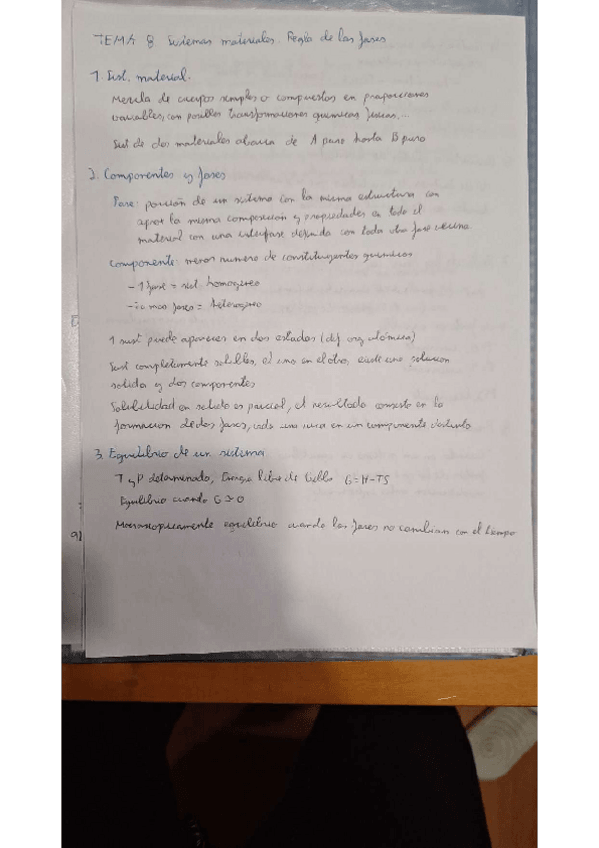 TEMA 8 Sistemas materiales. Regla de las fases
1. Sist. material.
Mezcla de cuerpos simples o compuestos en proporciones
variables, con posibles transformaciones quimicas, fisicas,...
Sist de dos materiales abarca de A puro hasta B puro
2. Componentes y fases
Fase: porción de un sistema con la misma estructura con
aprox la misma composición y propiedades en todo el
material con una interfase definida con toda otra fase vecina.
Componente: menor numero de constituyentes quimicos
- 1 fase = sist. homogéneo
- ió mas fases = heterogeneo
1 sust puede aparecer en dos estados (dif org atómica)
Sust completamente solubles, el uno en el otro, existe una solucion
solida y dos componentes
Solubilidad en solido es parcial, el resultado consiste en la
formacion de dos fases, cada una rica en un componente distinto
3. Equilibrio de un sistema
T y P determinado, Energia libre de Gibbs G=H-TS
Equilibrio cuando G 0
Macroscopicamente equilibrio cuando las fases no cambian con el tiempo
91